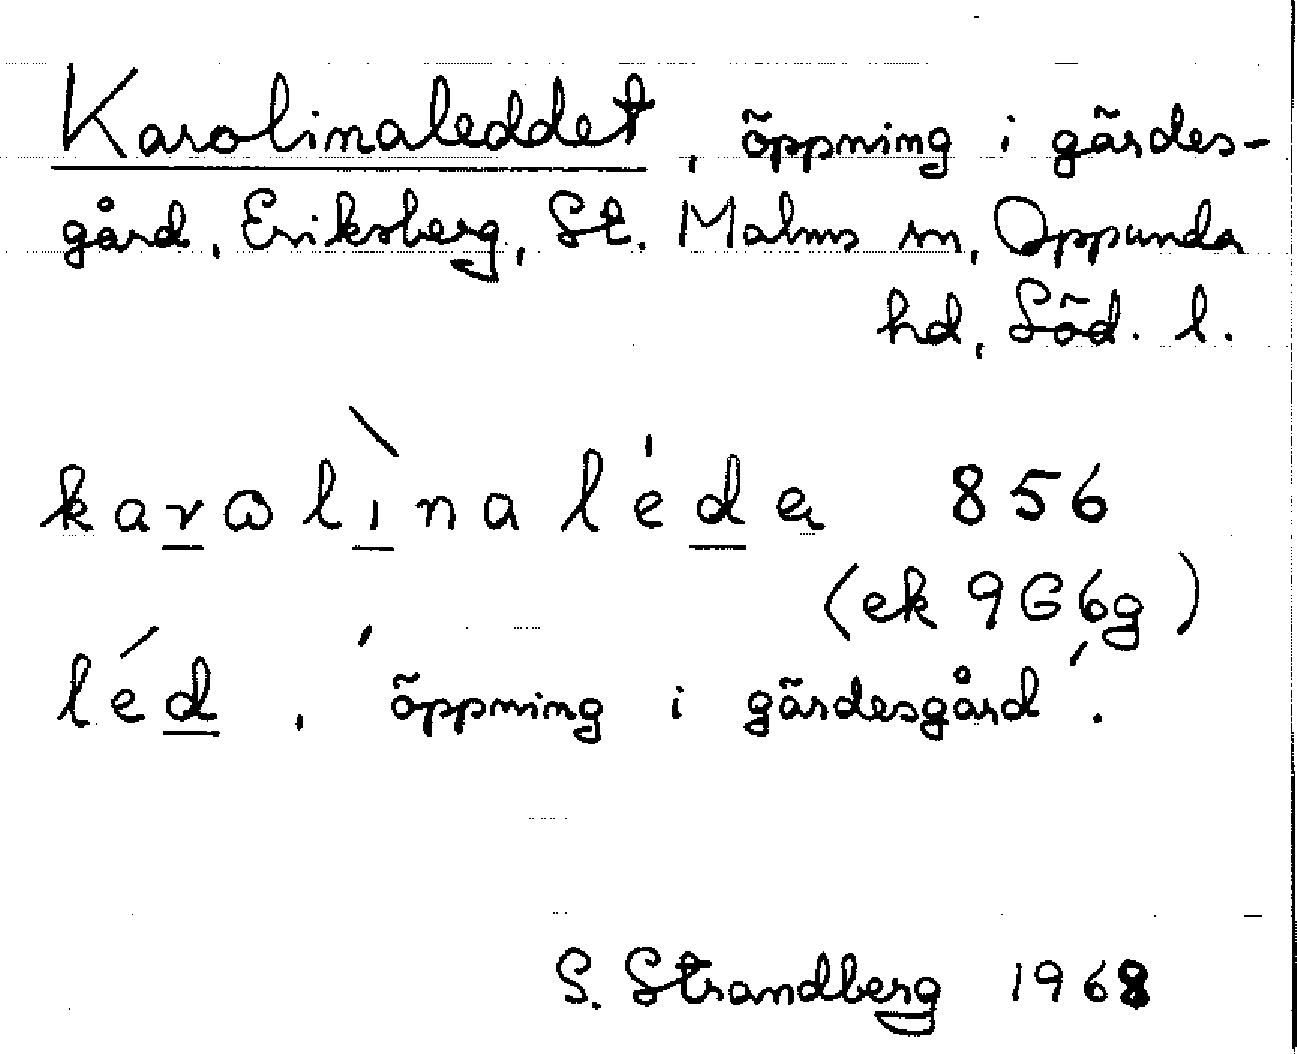 Karolinaleddet, öppning i gärdes-
gård, Eriksberg, St. Malms sn, Oppunda
hd, Söd. l.
karωlìnaléda 856
(ek 9G6g)
léd, 'öppning i gärdesgård'.
S. Strandberg 1968